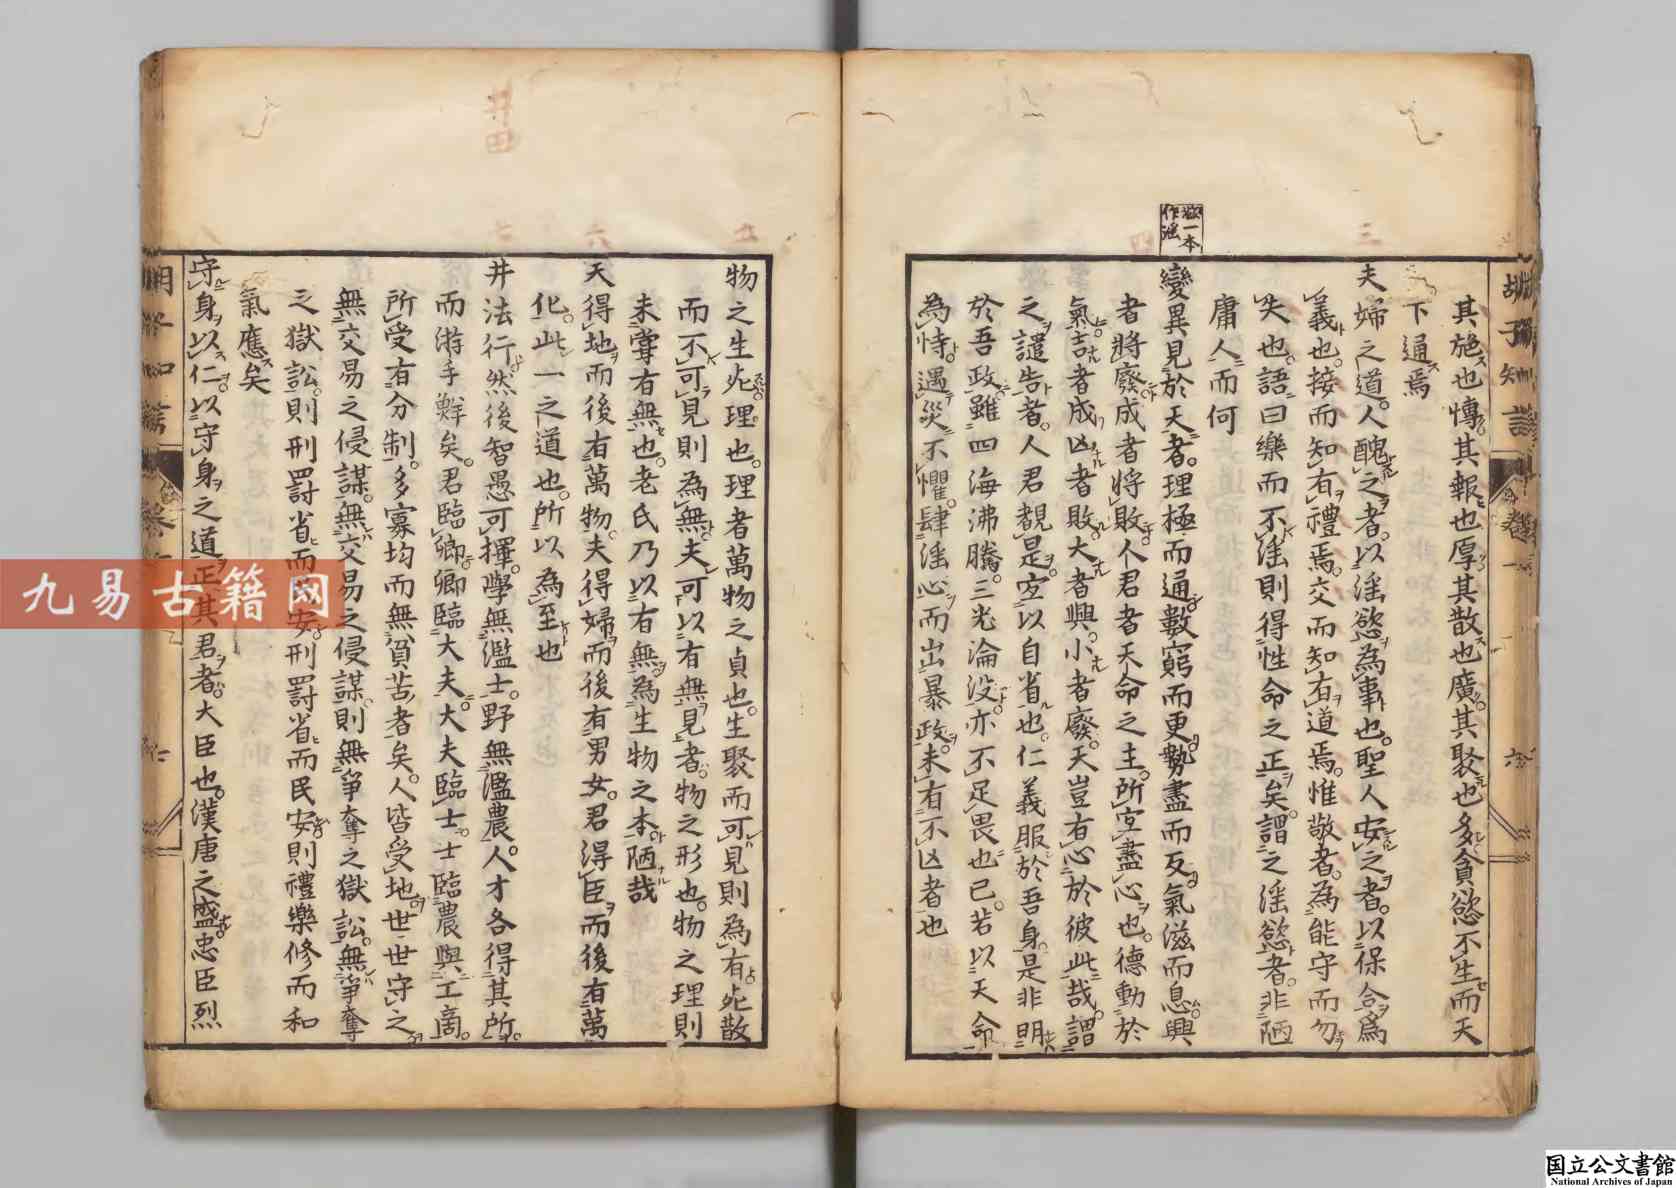 胡子知言 卷一
三
其施也慱其報也厚其散也廣其聚也多貪慾不生而天
下通焉
夫婦之道人醜之者以淫慾為事也聖人安之者以保合爲
義也接而知有禮焉交而知有道焉惟敬者為能守而勿
失也語曰樂而不淫則得性命之正矣謂之淫慾者非陋
庸人而何
四
欲一本
作滋
變異見於天者理極而通數窮而更勢盡而反氣滋而息興
者將廢成者將敗人君者天命之主所宜盡心也德動於
氣吉者成凶者敗大者興小者廢天豈有心於彼此哉謂
之譴告者人君覩是宜以自省也仁義服於吾身是非明
於吾政雖四海沸騰三光淪没亦不足畏也已若以天命
為恃遇災不懼肆淫心而出暴政未有不凶者也
五
物之生死理也理者萬物之貞也生聚而可見則為有死散
而不可見則為無夫可以有無見者物之形也物之理則
未嘗有無也老氏乃以有無為生物之本陋哉
六
天得地而後有萬物夫得婦而後有男女君得臣而後有萬
化此一之道也所以為至也
七
井田
井法行然後智愚可擇學無濫士野無濫農人才各得其所
而游手鮮矣君臨卿卿臨大夫大夫臨士士臨農與工商
所受有分制多寡均而無貧苦者矣人皆受地世世守之
無交易之侵謀無交易之侵謀則無爭奪之獄訟無爭奪
之獄訟則刑罰省而民安刑罰省而民安則禮樂修而和
氣應矣
守身以仁以守身之道正其君者大臣也漢唐之盛忠臣烈
九易古籍网
国立公文書館
National Archives of Japan